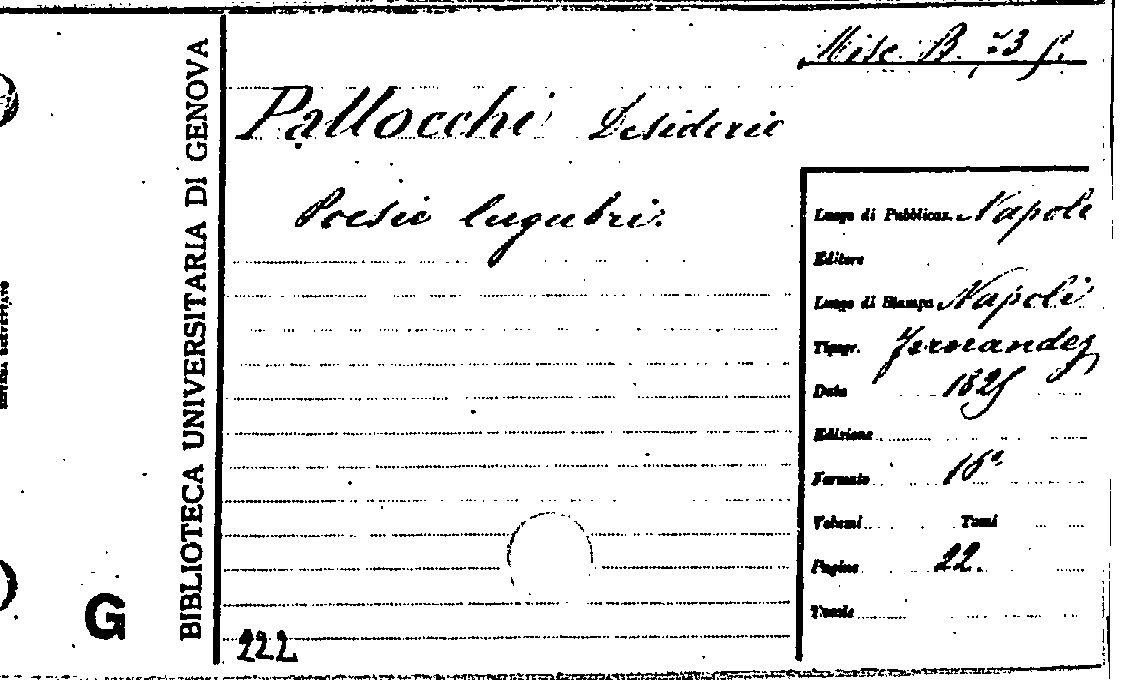 Misc. B. 73 f.
Pallocchi Desiderio
Poesie lugubri.
Luogo di Pubblicaz. Napoli
Editore
Luogo di Stampa Napoli
Tipogr. Fernandez
Data
Edizione
Formato 16º
Volumi Tomi
Pagine 22.
Tavole
BIBLIOTECA UNIVERSITARIA DI GENOVA
G
222